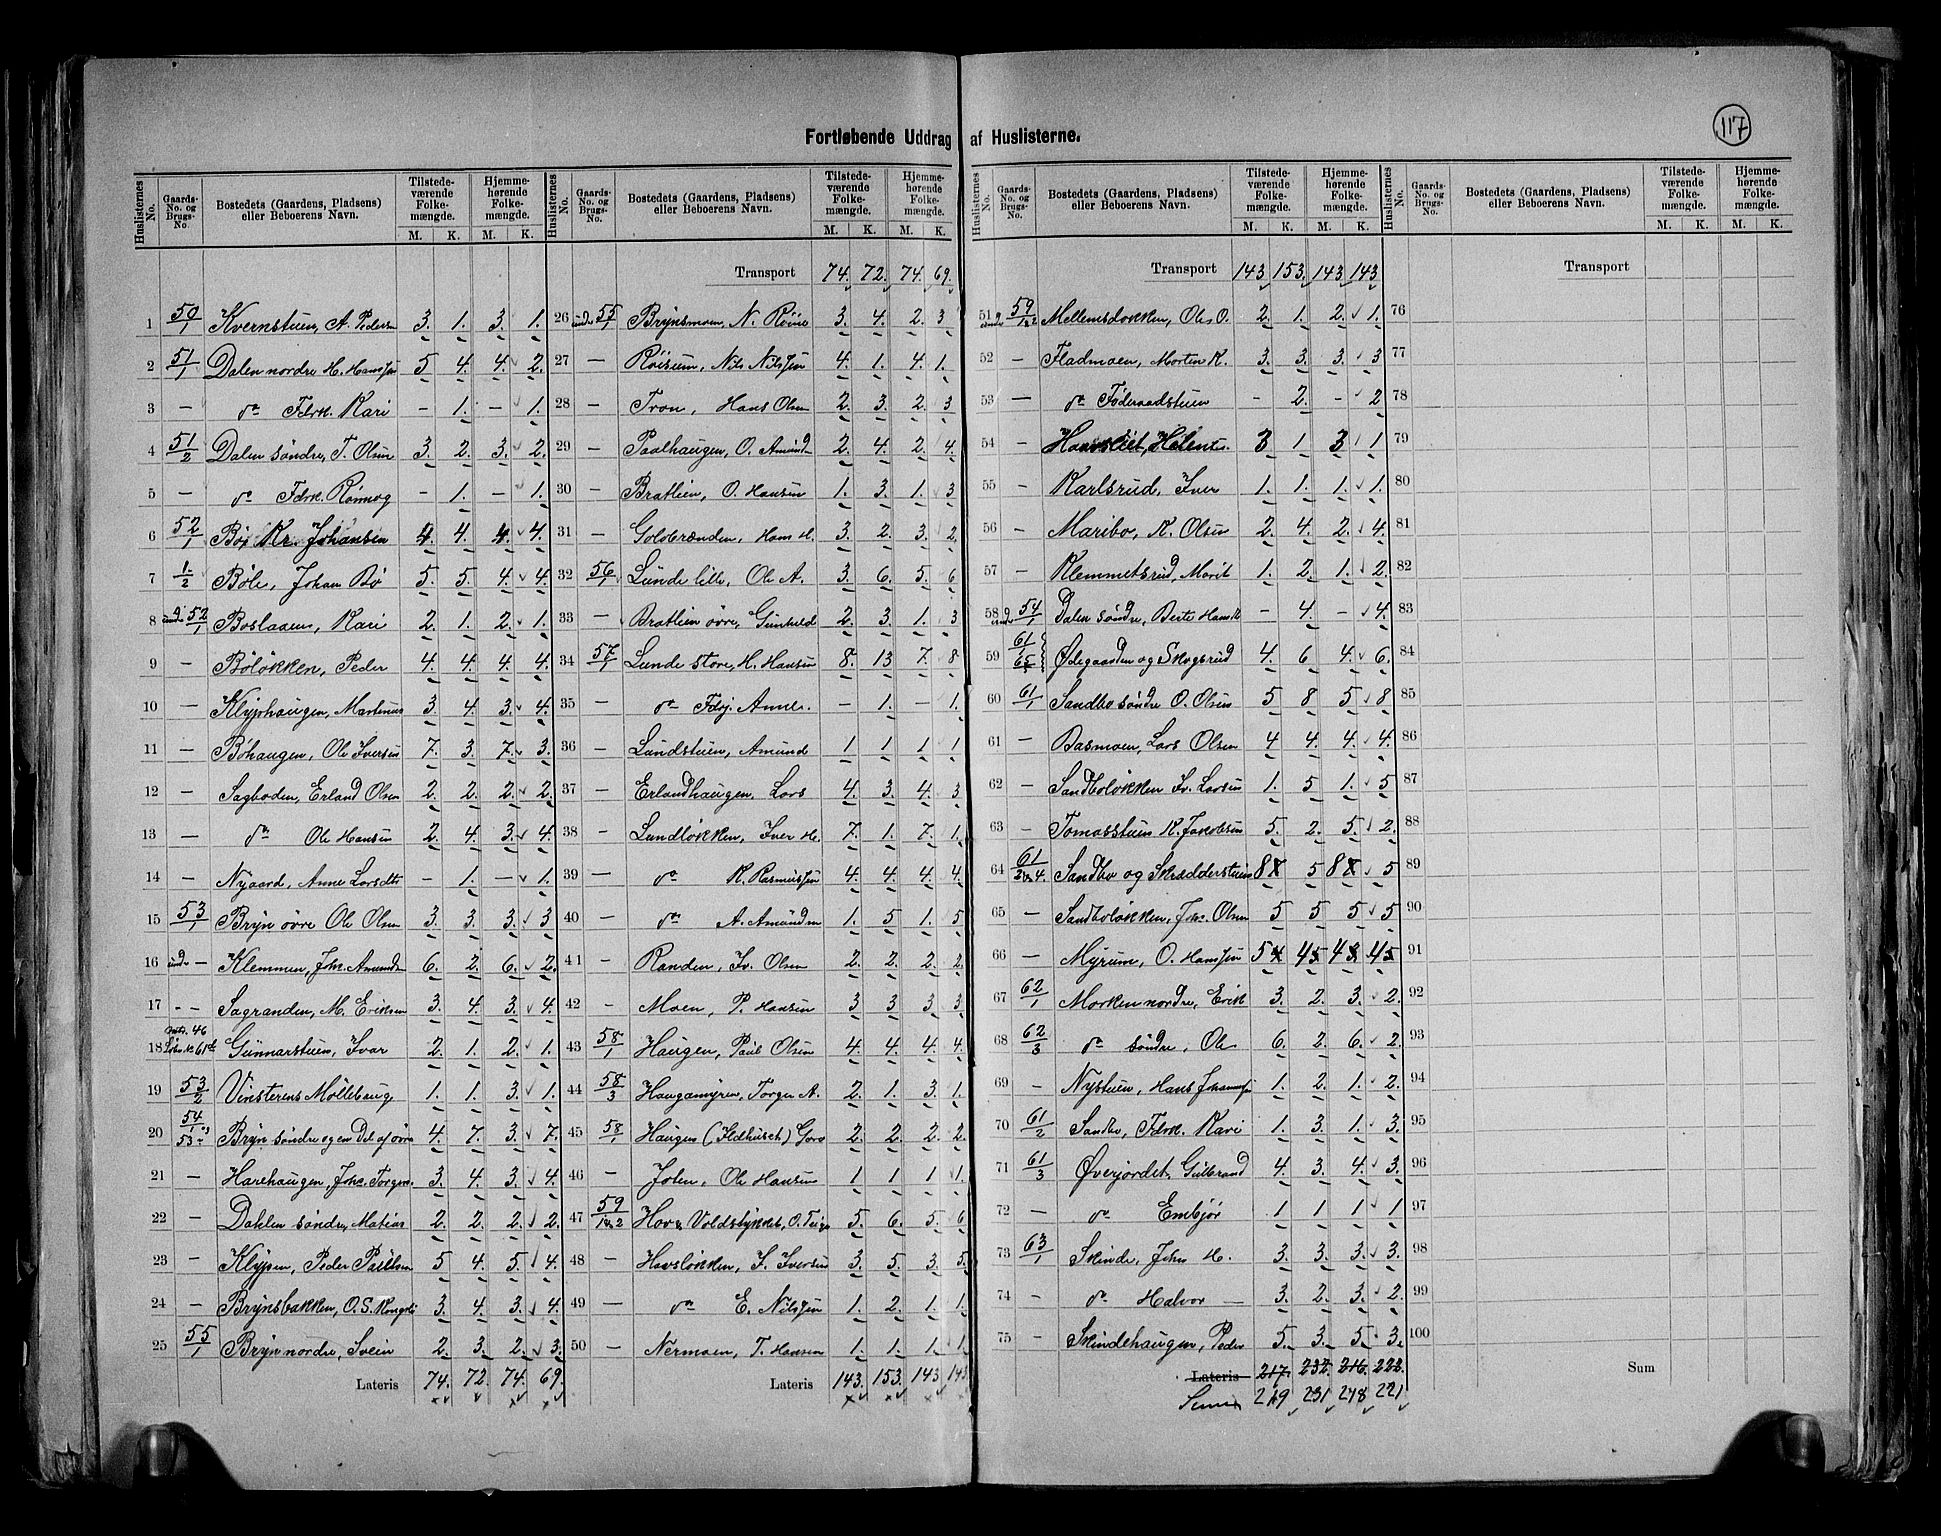 117
Fortløbende Uddrag af Huslisterne.
Huslisternes No. Gaards-No. og Brugs-No. Bostedets (Gaardens, Pladsens) eller Beboerens Navn. Tilstedeværende Folkemængde. M. K. Hjemmehørende Folkemængde. M. K.
1 50/1 Kvernstuen, A. Peders 3. 1. 3. 1.
2 51/1 Dalen nordre H. Hansen 5 4. 4. 2.
3 — do Fdrk. Kari - 1. - 1.
4 51/2 Dalen søndre, T. Olsen 3. 2. 3. 2.
5 — do Fdrk. Rønnog - 1. - 1.
6 52/1 Bø, Kr. Johansen 4. 4. 4. 4.
7 1/2 Bøle, Johan Bø 5. 5. 4. 4.
8 under 52/1 Boslaaen, Kari 2. 1. 2. 1.
9 — Bøløkken, Peder 4. 4. 4. 4.
10 — Klyphaugen, Martinus 3. 4. 3. 4.
11 — Bøhaugen, Ole Iversen 7. 3. 7. 3.
12 — Sagboden, Erland Olsen 2. 2. 2. 2.
13 — do Ole Hansen 2. 4. 3. 4.
14 — Nyaard, Anne Larsdtr - 1. - 1.
15 53/1 Bryn øvre Ole Olsen 3. 3. 3. 3
16 under — Klemmen, Joh. Amunds 6. 2. 6. 2.
17 - - Sagranden, M. Eriksen 3. 4. 3. 4.
18 Gunnarstuen, Ivar 2. 1. 2. 1.
19 53/2 Vinsterens Møllebrug 1. 1. 3. 1.
20 54/1 53 Bryn søndre og en Del af øvre 4. 7. 3. 7.
21 — Harehaugen, Johs. Torgers. 3. 4. 3. 4.
22 — Dahlen søndre, Matias 2. 2. 2. 2.
23 — Klypen, Peder Paulsen 5 4. 5. 4.
24 — Brynsbakken, O. S. 3. 4. 3. 4.
25 55/1 Bryn nordre, Svein 2. 3. 2. 3.
Lateris 74. 72. 74. 69.
Huslisternes No. Gaards-No. og Brugs-No. Bostedets (Gaardens, Pladsens) eller Beboerens Navn. Tilstedeværende Folkemængde. M. K. Hjemmehørende Folkemængde. M. K.
Transport 74. 72. 74. 69.
26 under 55/1 Brynsmoen, N. 3. 4. 2. 3
27 — Røisum, Nils Nilssen 4. 1. 4. 1.
28 — Tron, Hans Olsen 2. 3. 2. 3
29 — Paalhaugen, O. Amund 2. 4. 2. 4.
30 — Bratlien, O. Hansen 1. 3. 1. 3
31 — Golobrænden, Hans H. 3. 2. 3. 2
32 56/1 Lunde lille, Ole A. 3. 6. 5. 6
33 — Bratlien øvre, Gunhild 2. 3. 1. 3
34 57/1 Lunde store, H. Hansen 8. 13 7. 8
35 — do Fdrj. Anne. - 1. - 1.
36 — Lundstuen, Amund 1 1 1 1
37 — Erlandhaugen, Lars 4. 3. 4. 3
38 — Lundløkken, Iver H. 7. 1. 7. 1.
39 — do R. Rasmussen 4. 4. 4. 4.
40 — do A. Amundsen 1. 5 1. 5
41 — Randen, Iv. Olsen 2. 2. 2. 2.
42 - Moen, P. Hansen 3 3 3 3
43 58/1 Haugen, Paul Olsen 4. 4. 4. 4.
44 58/3 Haugamyren, Torger A. 2. 1. 3. 1.
45 58/1 Haugen (Ildhuset) Goro 2. 2. 2. 2.
46 — Joten, Ole Hansen 1 1 1 1.
47 59/1&2 Hov & Voldstykket, O. 5. 6. 5. 6
48 — Hovsløkken, I. Iversen 3. 5. 3. 5.
49 — do E. Nilssen 1. 2. 1. 1.
50 — Nermoen, T. Hansen 1. 1. 1. 1
Lateris 143. 153. 143 143.
Huslisternes No. Gaards-No. og Brugs-No. Bostedets (Gaardens, Pladsens) eller Beboerens Navn. Tilstedeværende Folkemængde. M. K. Hjemmehørende Folkemængde. M. K.
Transport 143 153. 143 143
51 under 59/1&2 Mellemsdokken, Ole O. 2. 1. 2. 1.
52 — Fladmoen, Morten K. 3. 3. 3. 3
53 — do Føderaadstuen - 2. - 2
54 — 3 1 3 1
55 — Karlsrud, Iver 1. 1. 1. 1.
56 — Maribo, K. Olsen 2. 4. 2. 4.
57 — Klemmetsrud, Marit 1. 2. 1. 2.
58 under 54/1 Dalen søndre, Berte Hansdtr - 4. - 4.
59 61/ 65 Ødegaarden og Skogsrud 4. 6 4. 6.
60 61/1 Sandbo søndre O. Olsen 5 8 5 8
61 — Basmoen, Lars Olsen 4 4. 4. 4.
62 — Sandboløkken Iv. Larsen 1. 5 1. 5
63 — Tomasstuen K. Jakobsen 5. 2. 5. 2.
64 61/2&4 Sandbo og Skrædderstuen 8 5 8 5
65 — Sandboløkken, Johs. Olsen 5 5 5 5
66 — Myrum, O. Hanssen 5 4 5 4 3 4 5
67 62/1 Morken nordre, Erik 3. 2. 3. 2.
68 62/3 do søndre, Ole 6. 2. 6. 2.
69 — Nystuen, Hans Johannessen 1. 2. 1. 2.
70 61/2 Sandbo, Fdrk. Kari 1. 3. 1. 3.
71 61/3 Øverjordet, Gulbrand 4. 3. 4. 3.
72 — do Embjør 1 1 1 1
73 63/1 Skinde, John H. 3. 3. 3. 3.
74 — do Halvor 3. 2. 3. 2.
75 — Skindehaugen, Peder 5. 3. 5. 3.
Lateris 217. 232. 216. 222.
Summa 219 231 218 221
Huslisternes No. Gaards-No. og Brugs-No. Bostedets (Gaardens, Pladsens) eller Beboerens Navn. Tilstedeværende Folkemængde. M. K. Hjemmehørende Folkemængde. M. K.
Transport
76
77
78
79
80
81
82
83
84
85
86
87
88
89
90
91
92
93
94
95
96
97
98
99
100
Sum